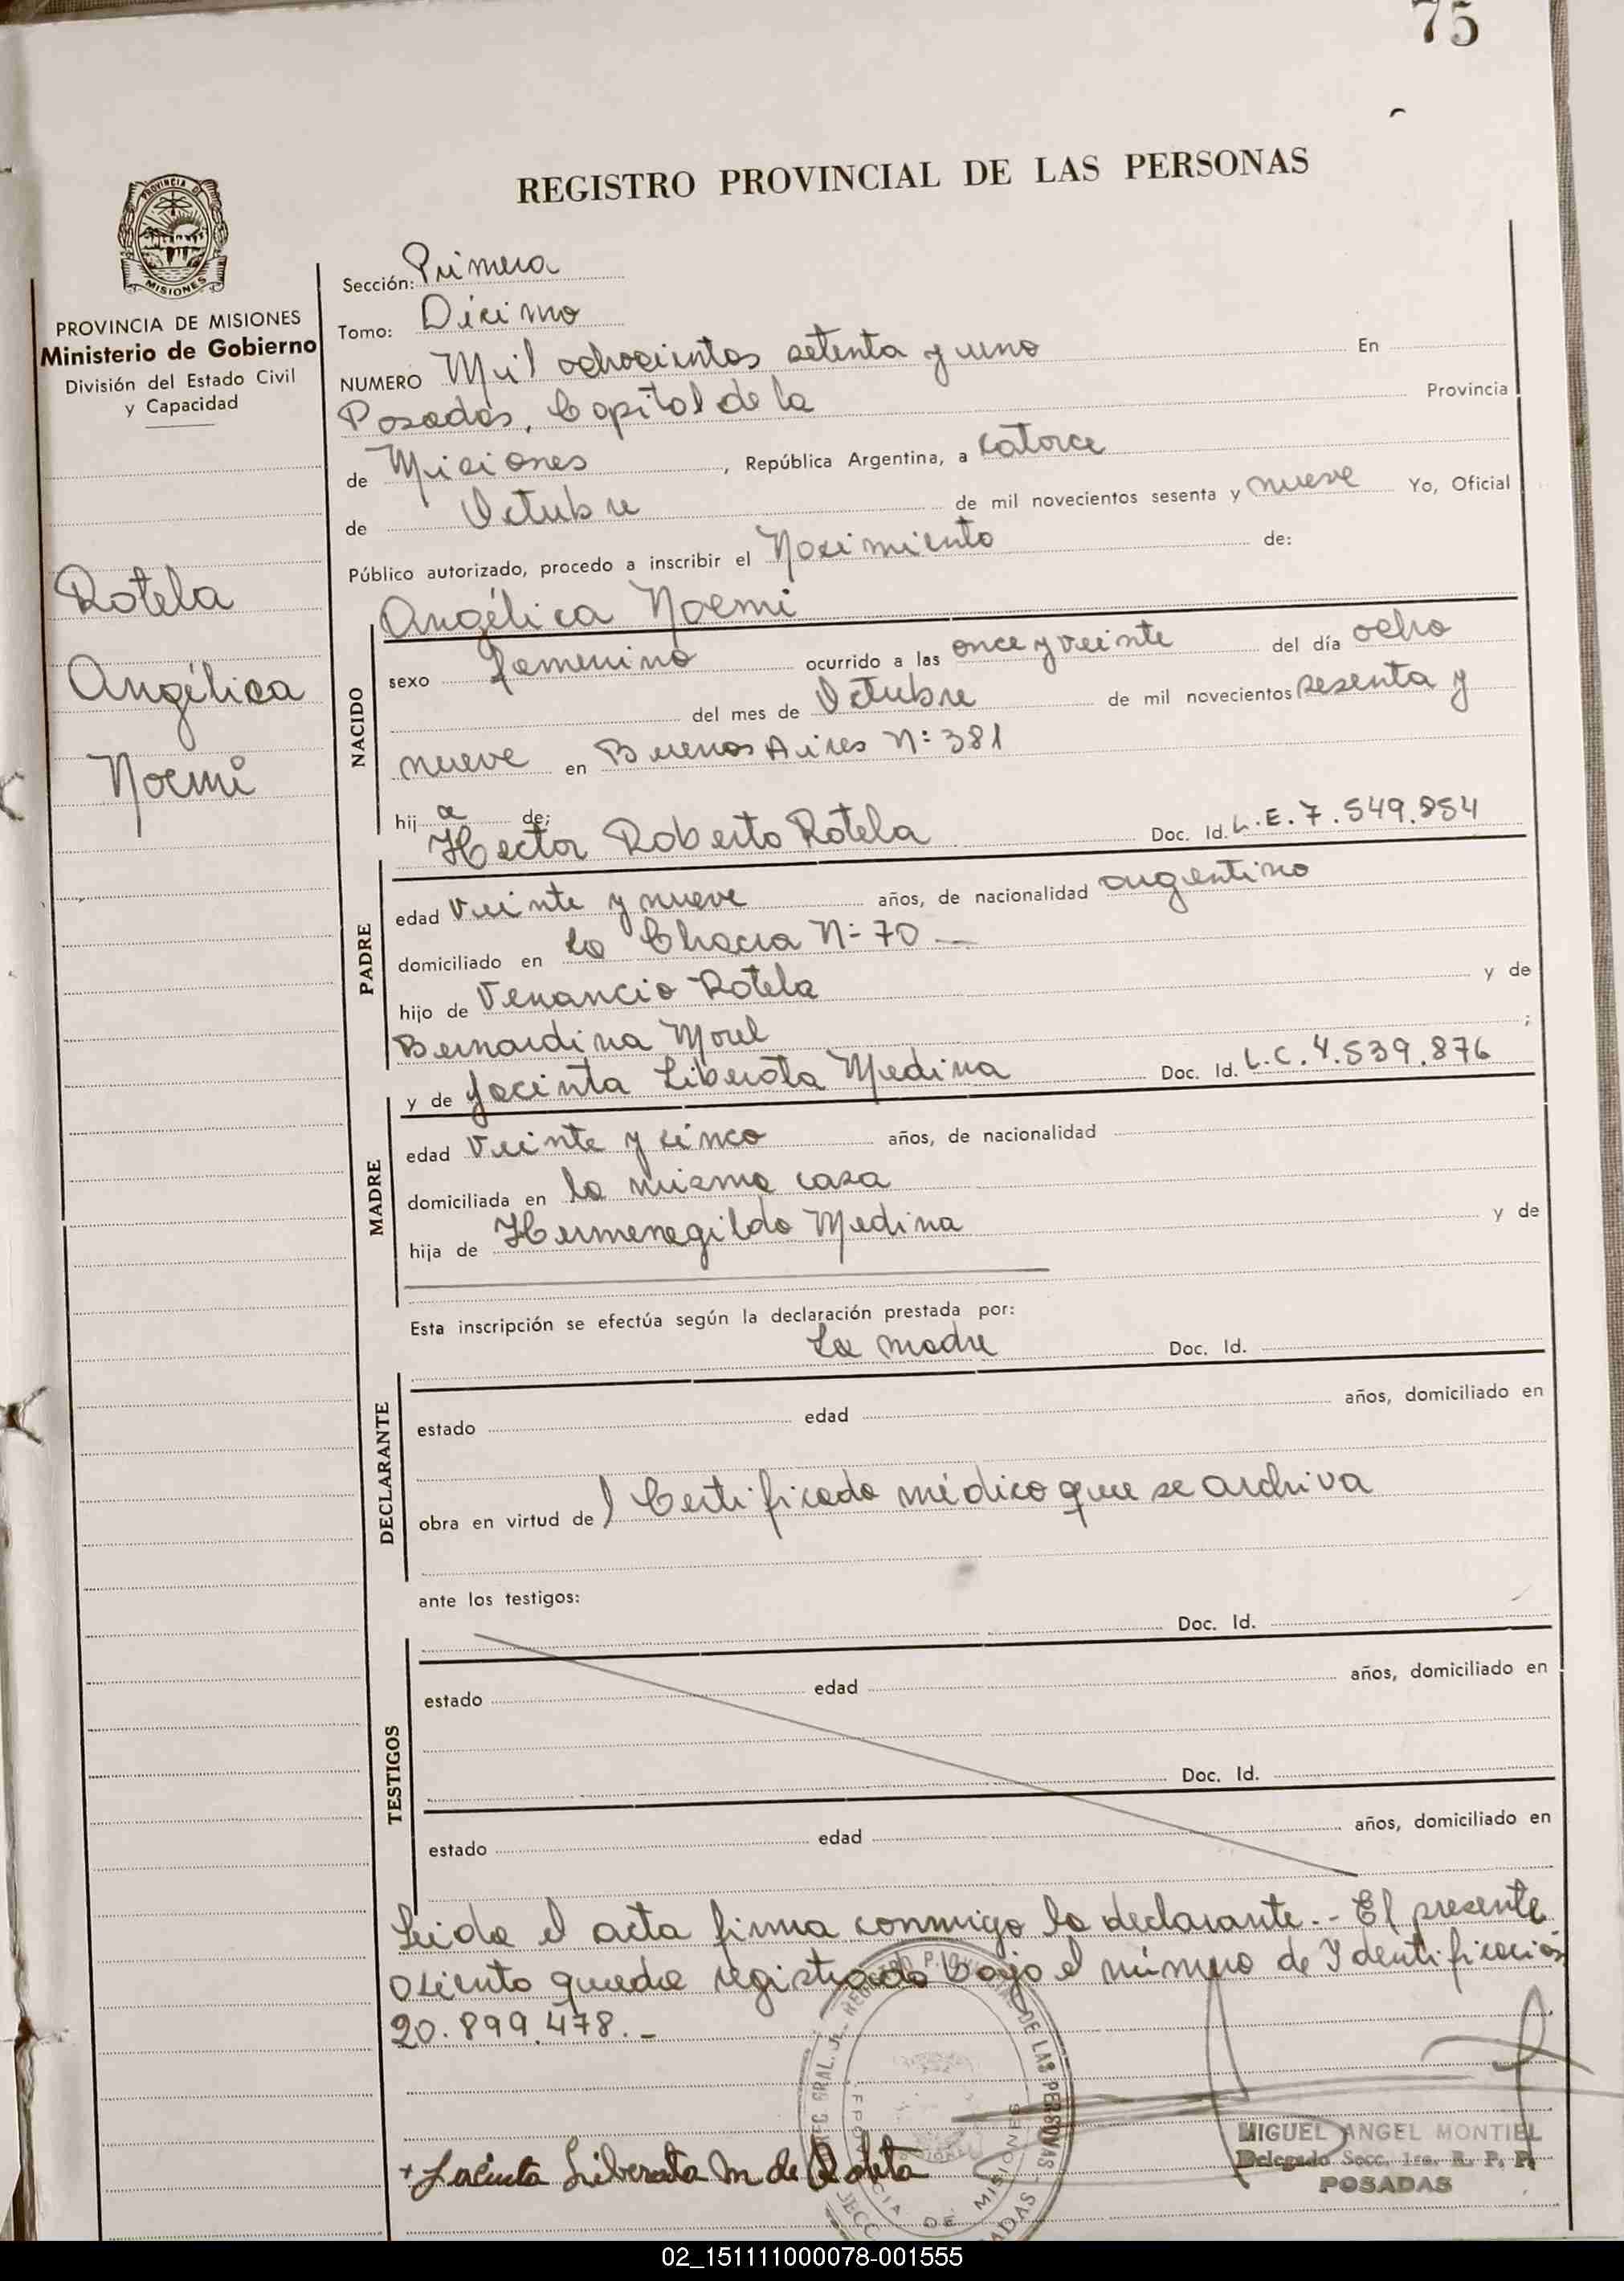 75
REGISTRO PROVINCIAL DE LAS PERSONAS
PROVINCIA DE
MISIONES
PROVINCIA DE MISIONES
Ministerio de Gobierno
División del Estado Civil
y Capacidad
Rotela
Angélica
Noemi
Sección: Primera
Tomo: Décimo
NUMERO Mil ochocientos setenta y uno En
Posadas, Capital de la Provincia
de Misiones, República Argentina, a catorce
de Octubre de mil novecientos sesenta y nueve Yo, Oficial
Público autorizado, procedo a inscribir el Nacimiento de:
Angélica Noemi
NACIDO
sexo femenino ocurrido a las once y veinte del día ocho
del mes de Octubre de mil novecientos sesenta y
nueve en Buenos Aires N: 381
hija de:
Hector Roberto Rotela Doc. Id. L.E. 7.549.854
PADRE
edad veinte y nueve años, de nacionalidad argentino
domiciliado en la Chacra N: 70
hijo de Venancio Rotela y de
Bernardina Morel ;
y de Jacinta Liberata Medina Doc. Id. L.C. 4.539.876
MADRE
edad veinte y cinco años, de nacionalidad
domiciliada en la misma casa
hija de Hermenegildo Medina y de
Esta inscripción se efectúa según la declaración prestada por:
La madre Doc. Id.
DECLARANTE
estado edad años, domiciliado en
obra en virtud de Certificado médico que se archiva
ante los testigos:
Doc. Id.
TESTIGOS
estado edad años, domiciliado en
Doc. Id.
estado edad años, domiciliado en
Leida el acta firma conmigo la declarante.- El presente
asiento queda registrado bajo el número de Ydentificación
20.899.478.-
REGISTRO PROVINCIAL DE LAS PERSONAS
PROVINCIA DE MISIONES
Jacinta Liberata M de Rotela
MIGUEL ANGEL MONTIEL
Delegado Secc. 1ra. R. P. P.
POSADAS
02_151111000078-001555